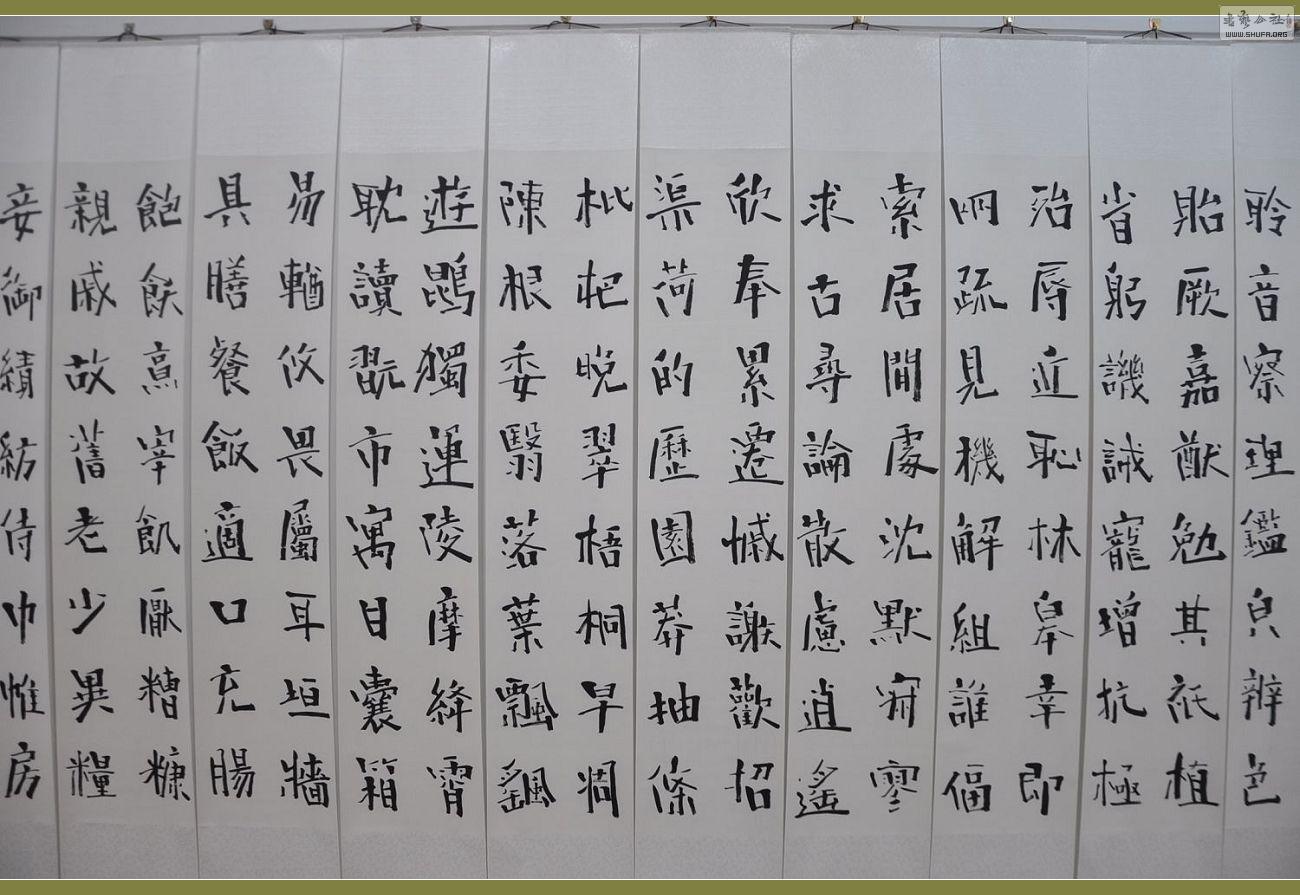 聆音察理鑑皃辨色
貽厥嘉猷勉其祇植
省躬譏誡寵增抗極
殆辱近恥林皋幸即
兩疏見機解組誰偪
索居閒處沈默寂寥
求古尋論散慮逍遙
欣奉累遣慽謝歡招
渠荷的歷園莽抽條
枇杷晚翠梧桐早凋
陳根委翳落葉飄颻
遊鵾獨運陵摩絳霄
耽讀翫市寓目囊箱
易輶攸畏屬耳垣牆
具膳餐飯適口充腸
飽飫烹宰飢厭糟糠
親戚故舊老少異糧
妾御績紡侍巾帷房
書藝公社
WWW.SHUFA.ORG